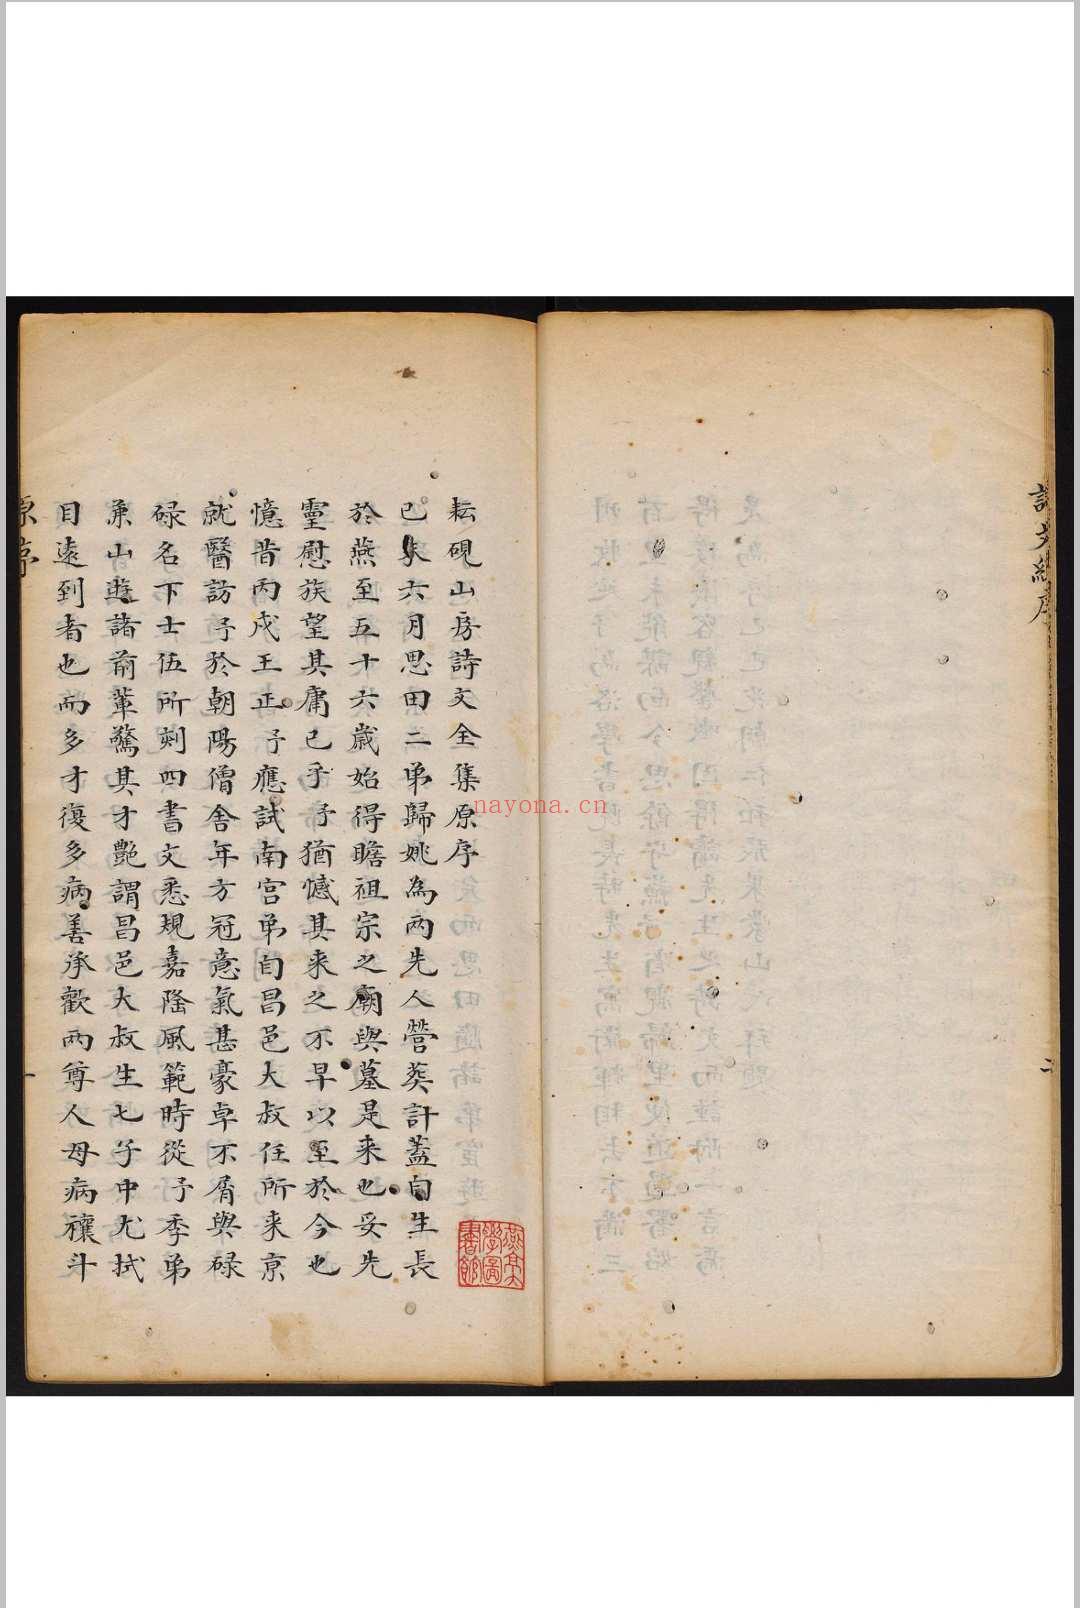 耘硯山房詩文全集原序
已未六月思田二弟歸姚為兩先人營葬計蓋自生長
於燕至五十六歲始得瞻祖宗之廟與墓是来也妥先
靈慰族望其庸已乎予猶憾其来之不早以至於今也
憶昔丙戍王正予應試南宫弟自昌邑大叔任所来亰
就醫訪予於朝陽僧舍年方冠意氣甚豪卓不屑與碌
碌名下士伍所刻四書文悉規嘉隆風範時從予季弟
兼山遊諸前輩驚其才艶謂昌邑大叔生七子中尤拭
目遠到者也而多才復多病善承歡兩尊人母病禳斗
原序
一
燕京大學圖書館
nayona.cn